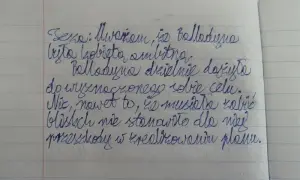 Teza: Uważam, że Balladyna
była kobietą ambitną.
Balladyna dzielnie dążyła
do wyznaczonego sobie celu.
Nic, nawet to, że musiała zabić
bliskich nie stanowiło dla niej
przeszkody w zrealizowaniu planu.